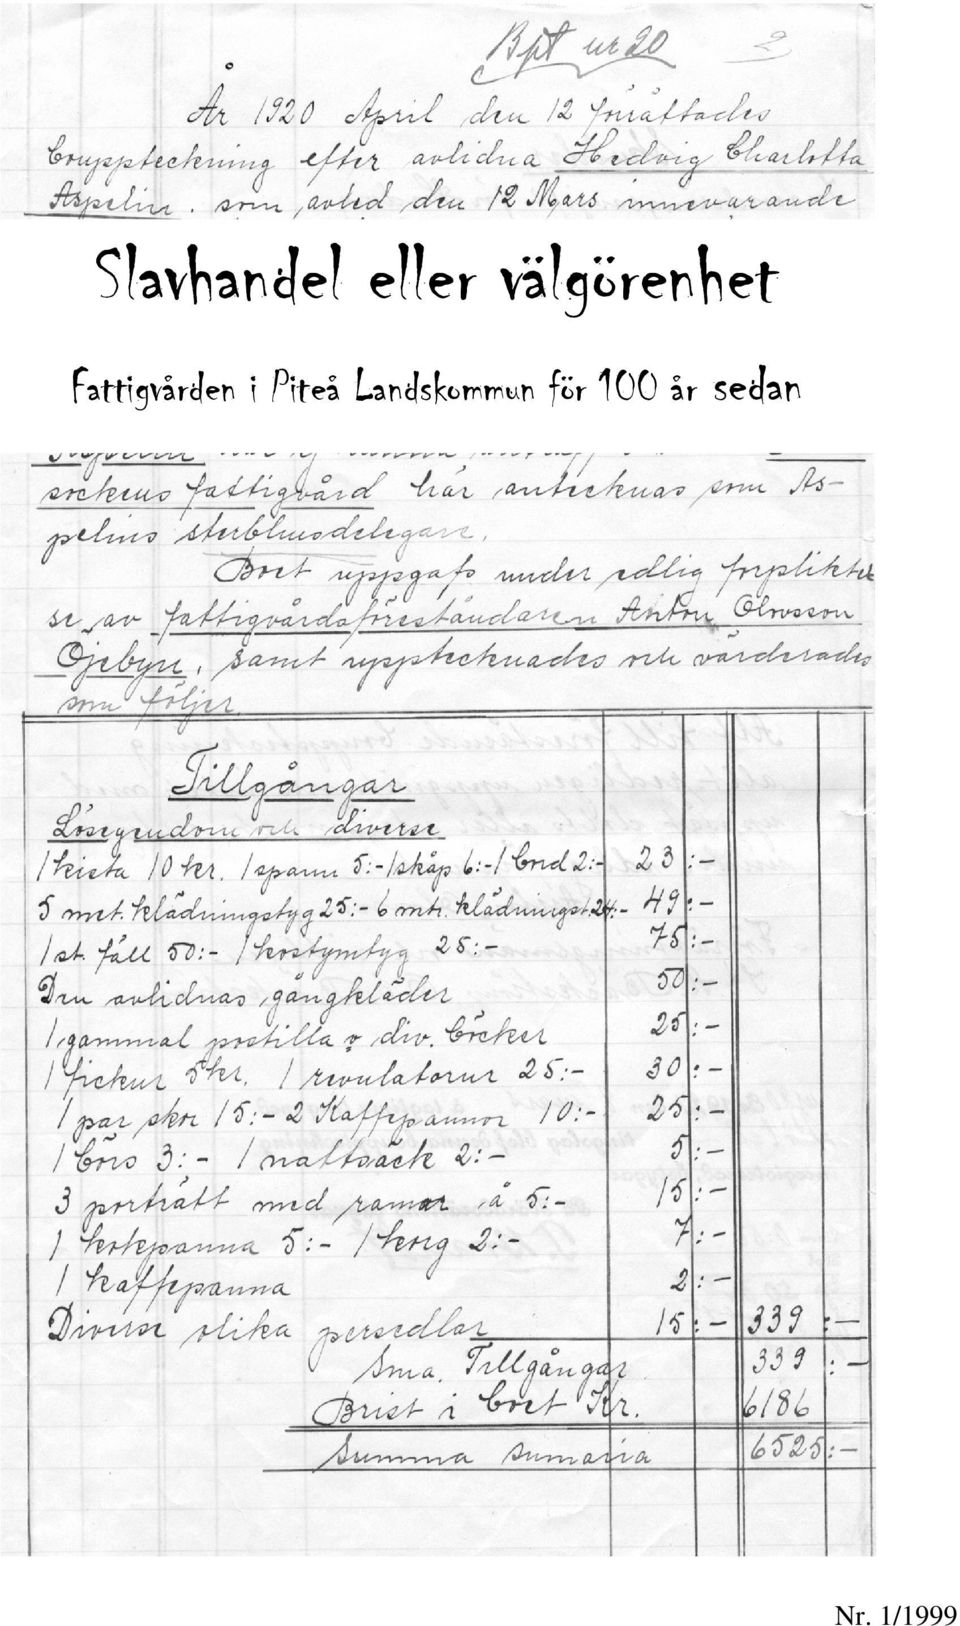 Bpt nr 20 2
År 1920 April den 12 förrättades
bouppteckning efter avlidna Hedvig Charlotta
Aspelin. som avled den 12 Mars innevarande
Slavhandel eller välgörenhet
Fattigvården i Piteå Landskommun för 100 år sedan
sockens fattigvård här antecknas som As-
pelins sterbhusdelegare.
Boet uppgafs under edlig förpliktel
se av fattigvårdsföreståndaren Anton Olovsson
Öjebyn, samt upptecknades och värderades
som följer.
Tillgångar
Lösegendom och diverse
1 kista 10 kr. 1 spann 5:- 1 skåp 6:- 1 bord 2:- 23:-
5 met. klädningstyg 25:- 6 mtr. klädningst. 24:- 49:-
1 st. fäll 50:- 1 kostymtyg 25:- 75:-
Den avlidnas gångkläder 50:-
1 gammal postilla o div. böcker 25:-
1 fickur 5 kr. 1 revulatorur 25:- 30:-
1 par skor 15:- 2 Kaffepannor 10:- 25:-
1 börs 3:- 1 nattsäck 2:- 5:-
3 porträtt med ramar á 5:- 15:-
1 kokpanna 5:- 1 korg 2:- 7:-
1 kaffepanna 2:-
Diverse olika persedlar 15:- 339:-
Sma. Tillgångar 339:-
Brist i boet Kr. 6186
Summa sumaria 6525:-
Nr. 1/1999